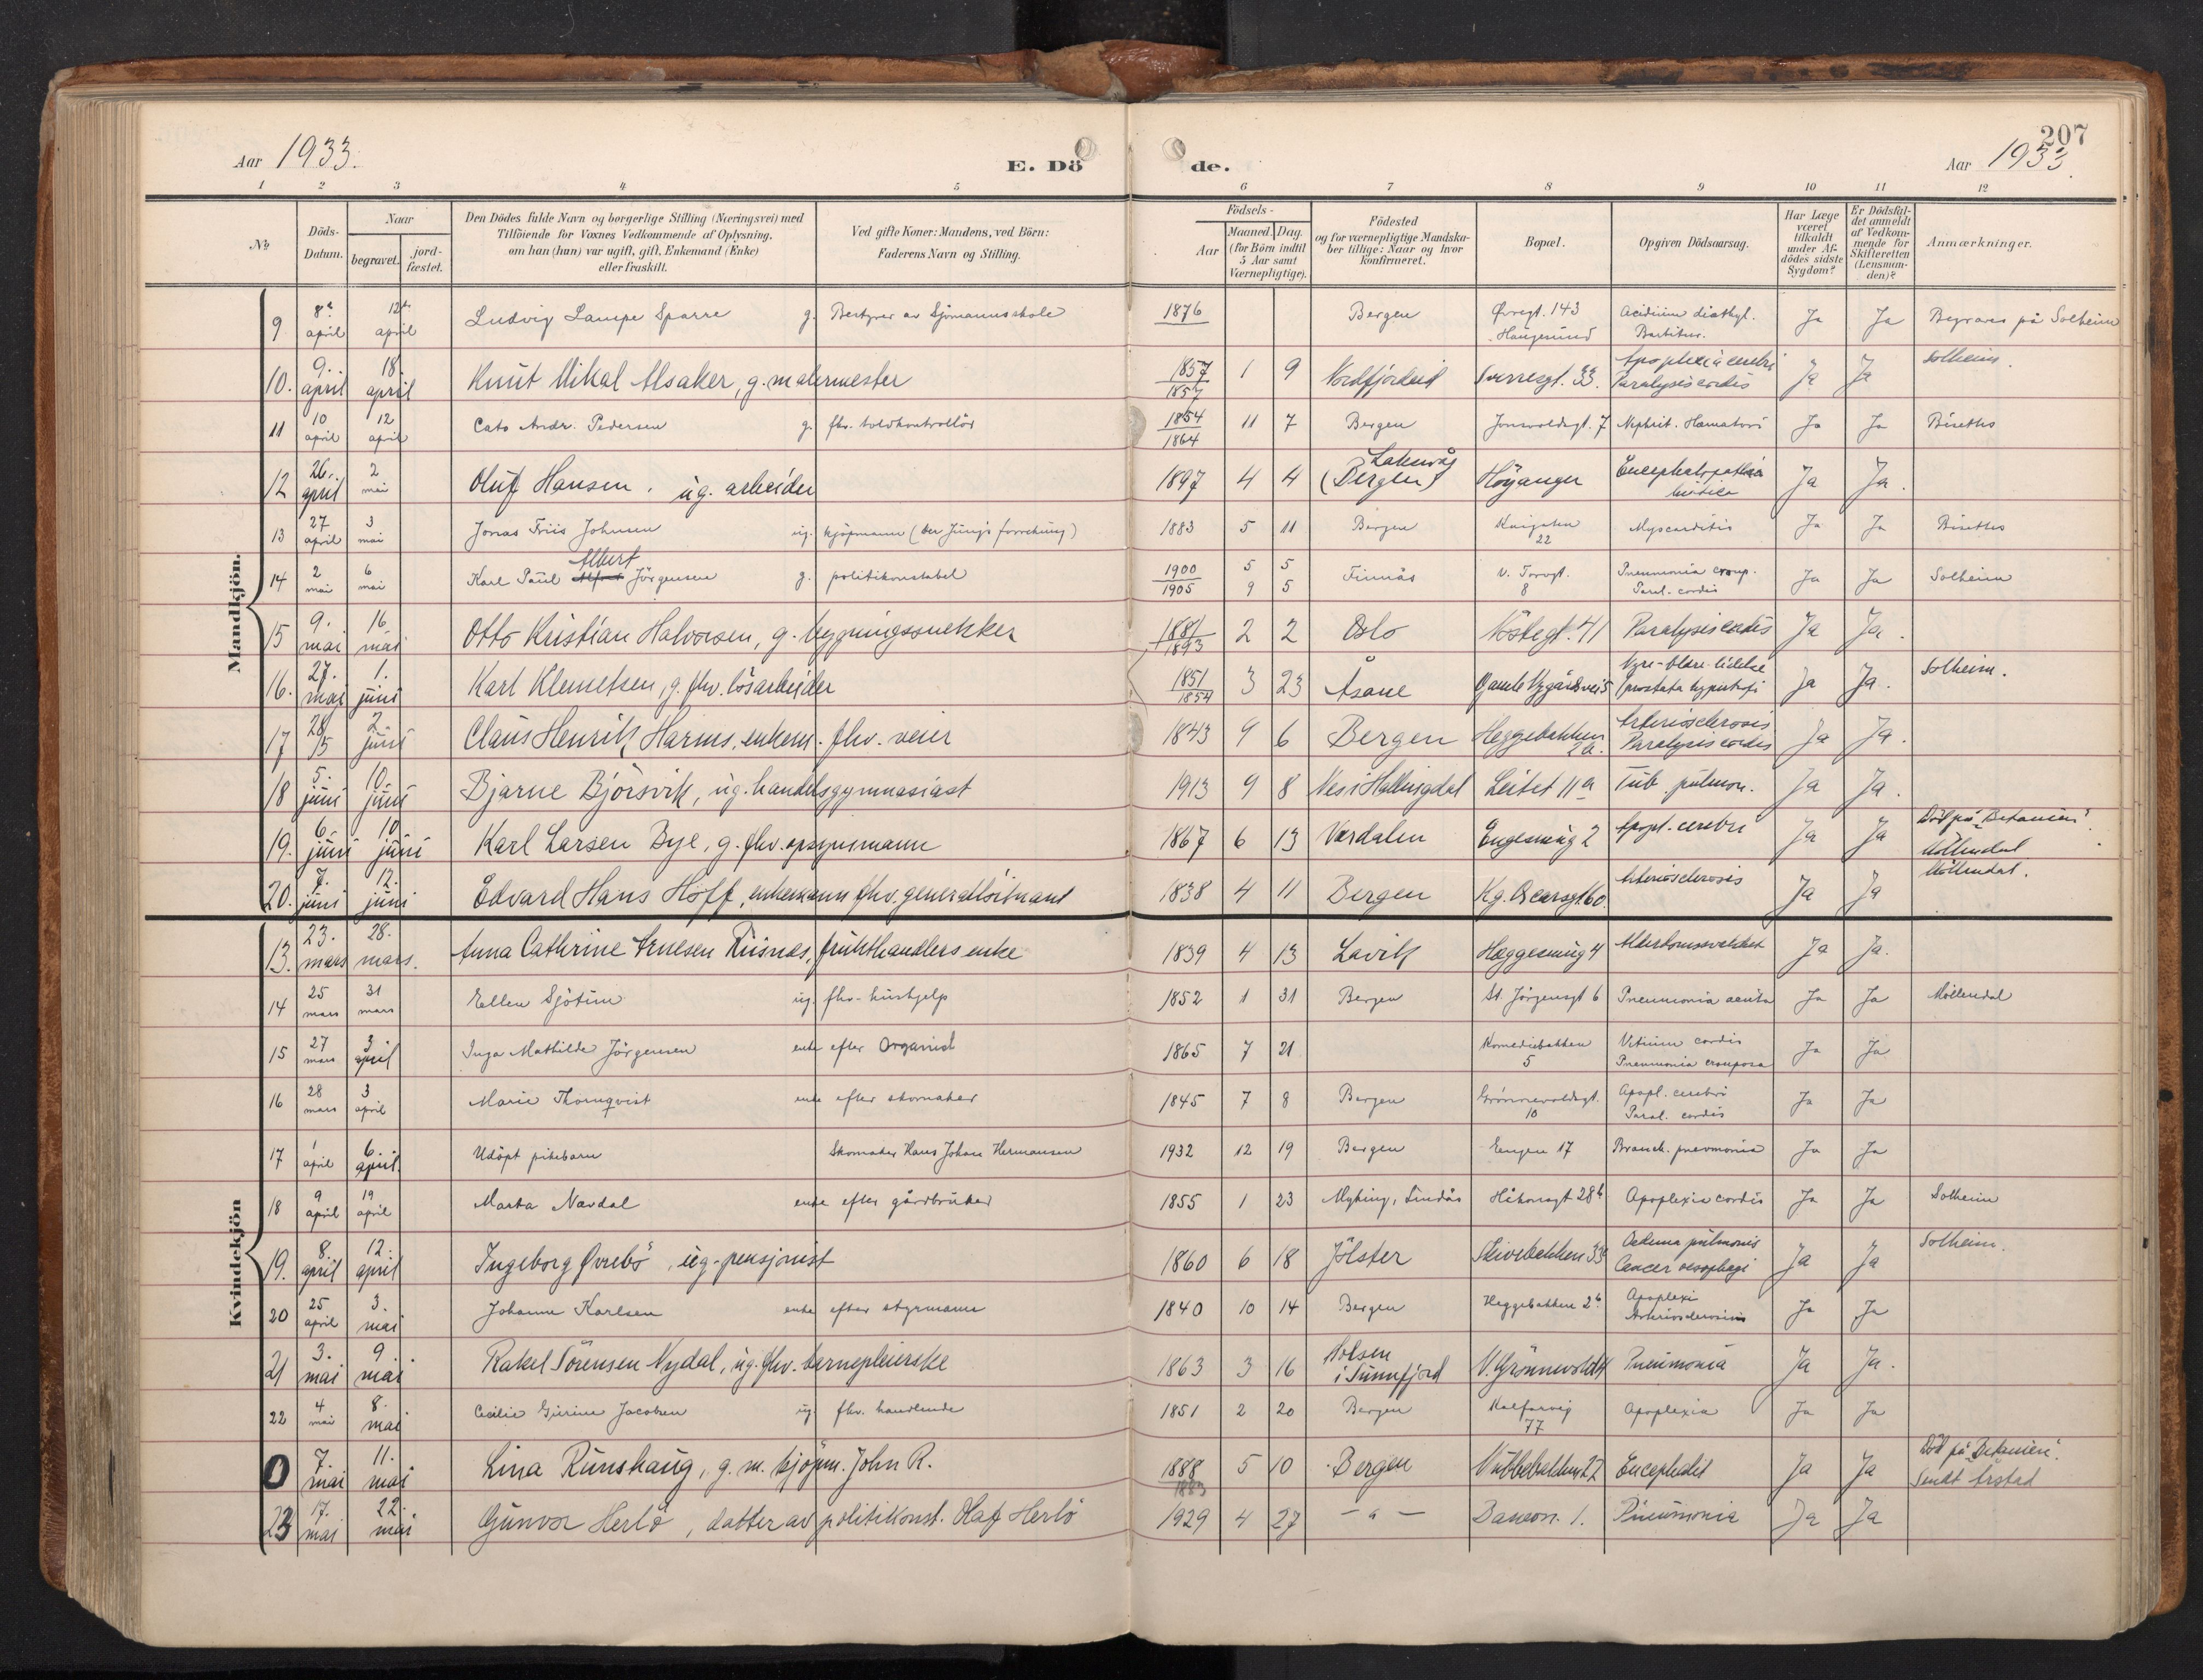 Aar 1933.
E. Döde.
207
Aar 1933.
1 2 3 4 5 6 7 8 9 10 11 12
No
Döds-Datum.
Naar
begravet.
jord-fæstet.
Den Dödes fulde Navn og borgerlige Stilling (Næringsvei) med
Tilföiende for Voxnes Vedkommende af Oplysning,
om han (hun) var ugift, gift, Enkemand (Enke)
eller fraskilt.
Ved gifte Koner: Mandens, ved Börn:
Faderens Navn og Stilling.
Födsels-
Aar
Maaned. Dag.
(for Börn indtil
5 Aar samt
Værnepligtige).
Födested
og for værnepligtige Mandska-
ber tillige: Naar og hvor
konfirmeret.
Bopæl.
Opgiven Dödsaarsag.
Har Læge
været
tilkaldt
under Af-
dödes sidste
Sygdom?
Er Dödsfal-
det anmeldt
af Vedkom-
mende for
Skifteretten
(Lensman-
den)?
Anmærkninger.
Mandkjön.
9 8de april 12te april Ludvig Lampe Sparre g. Bestyrer av Sjømannsskole 1876 Bergen Øvregt. 143 Haugesund Acidium diæthyl. Barbitur. Ja Ja Begraves på Solheim
10. 9. april 18. april Knut Mikal Alsaker, g. malermester 1857 1857 1 9 Nordfjordeid Sverresgt. 33. Apoplexia cerebri Paralysis cordis Ja Ja Solheim.
11 10 april 12 april Cato Andr. Pedersen g. fhv. toldkontrollör 1854 1864 11 7 Bergen Jonsvoldsgt. 7 Nephrit. Ja Ja Bisettes
12 26. april 2 mai Oluf Hansen. ug. arbeider 1897 4 4 Laksevåg (Bergen) Höyanger Ja Ja.
13 27 april 3 mai Jonas Friis Johnsen ug. kjöpmann 1883 5 11 Bergen 22 Myocarditis Ja Ja Bisettes
14 2 mai 6 mai Karl Paul Albert Jörgensen g. politikonstabel 1900 1905 5 5 9 5 Finnås V. Torvgt. 8 Pneumonia croup. Paral. cordis Ja Ja Solheim
15 9. mai 16. mai Otto Kristian Halvorsen, g. bygningssnekker 1881 1893 2 2 Oslo Nöstegt. 41 Paralysis cordis Ja Ja.
16. 27. mai 1. juni Karl Klemetsen, g. fhv. lösarbeider 1851 1854 3 23 Åsane Gamle Nygårdsvei 5 Nyre-blære-lidelse (prostata hypertrofi Ja Ja. Solheim.
17 28/5 2. juni Claus Henrik Harms, enkem. fhv. veier 1843 9 6 Bergen Heggebakken 2a. Arteriosclerosis Paralysis cordis Ja Ja.
18 5. juni 10. juni Bjarne Björsvik, ug. handelsgymnasiast 1913 9 8 Nes i Hallingdal Leitet 11a Tub. pulmon. Ja Ja.
19. 6. juni 10 juni Karl Larsen Bye, g. fhv. opsynsmann 1867 6 13 Værdalen Engesmug 2 Apopl. cerebri Ja Ja Död på "Betanien". Möllendal
20. 7. juni 12. juni Edvard Hans Hoff, enkemann fhv. generallöitnant 1838 4 11 Bergen Kg. Oscarsgt. 60. Arteriosclerosis Ja Ja Möllendal.
Kvindekjön
13. 23. mars 28. mars. Anna Cathrine Arnesen Risnes, frukthandlers enke 1839 4 13 Lavik Heggesmug 4 Alderdomssvakhet Ja Ja.
14 25 mars 31 mars Ellen Sjötun ug. fhv. hushjelp 1852 1 31 Bergen St. Jörgensgt 6 Pneumonia acuta Ja Ja Möllendal
15 27 mars 3 april Inga Mathilde Jörgensen enke efter Organist 1865 7 21 Komediebakken 5 Vitium cordis Pneumonia crouposa Ja Ja
16 28 mars 3 april Marie Thornqvist enke efter skomaker 1845 7 8 Bergen Grønnevoldsgt. 10 Apopl. cerebri Paral. cordis Ja Ja
17 1 april 6. april. Udöpt pikebarn Skomaker Hans Johan Hermansen 1932 12 19 Bergen Engen 17 Bronch. pneumonia Ja Ja
18 9 april 19 april Marta Nævdal enke efter gårdbruker 1855 1 23 Myking, Lindås Håkonsgt 28b Apoplexia cordis Ja Ja Solheim
19. 8. april 12. april Ingeborg Øvrebö, ug. pensjonist 1860 6 18 Jölster Skivebakken 33 Oedema pulmonis Cancer oesophagi Ja Ja Solheim.
20 25 april 3. mai Johanne Karlsen enke efter styrmann 1840 10 14 Bergen Heggebakken 2b Apoplexi Arteriosclerosis Ja Ja
21 3. mai 9. mai Rakel Sörensen Nydal, ug. fhv. barnepleierske 1863 3 16 Holsen i Sunnfjord Pneumonia Ja Ja.
22 4 mai 8. mai Cecilie Gurine Jacobsen ug. fhv. handlende 1851 2 20 Bergen Kalfarvei 77 Apoplexia Ja Ja
0 7. mai 11. mai Lina Runshaug, g. m. kjöpm. John R. 1888 1883 5 10 Bergen Nubbebakken 22 Encephalit Ja Ja Död på "Betanien". Sendt Årstad
23 17. mai 22. mai Gunvor Herlö, datter av politikonst. Olaf Herlö 1929 4 27 - " - 1. Pneumonia Ja Ja